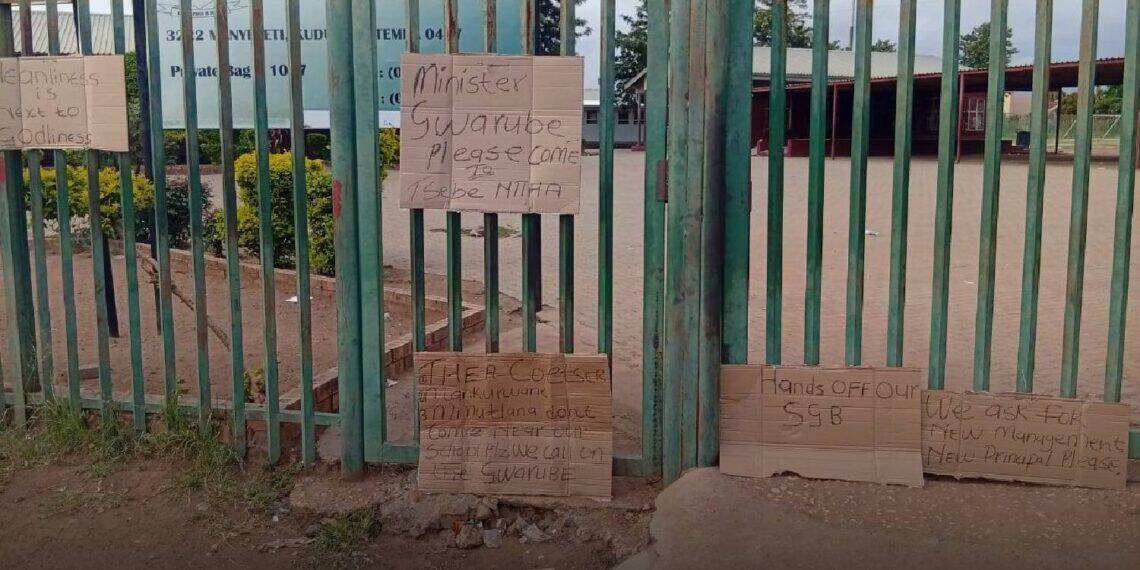 3222 MANY
Private Bag
cleanliness
is
next to
GOdliness
Minister
Gwarube
Please come
To
Tsebe
THER Coetser
3 Minutlana dont
Come Near our
School Plz We call on
Gwarube
Hands OFF Our
SGB
We ask for
New Management
New Principal Please